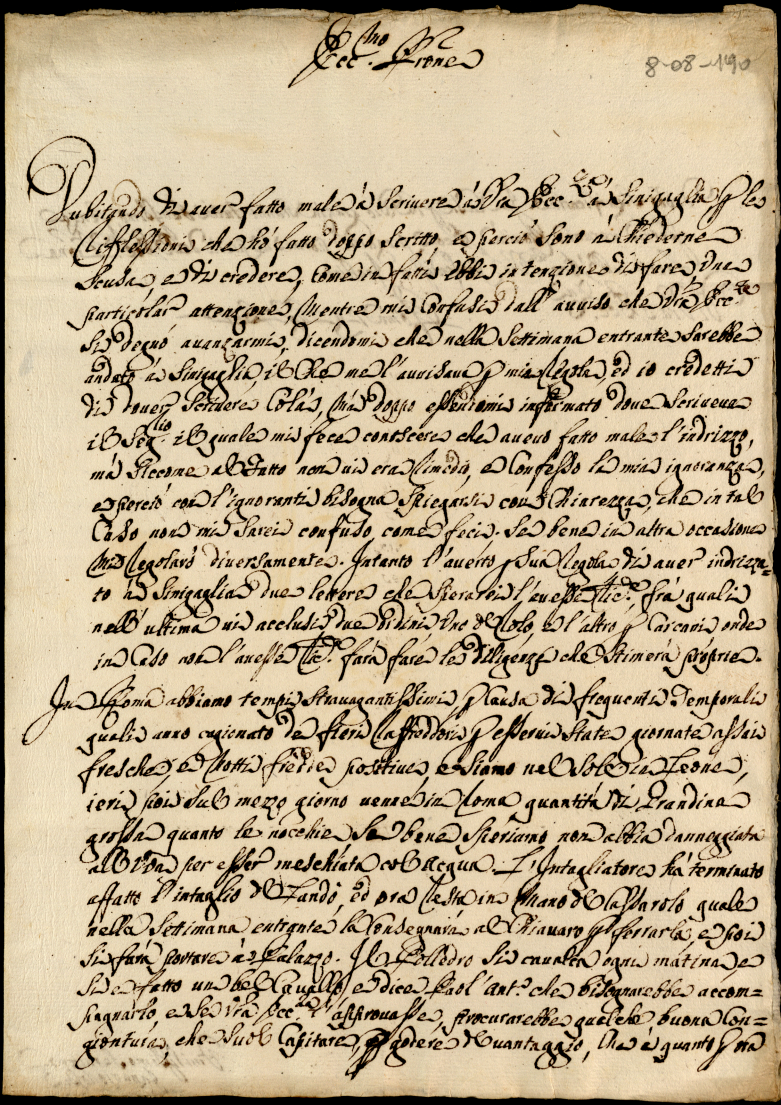 Ecc.mo Sig.r Prone
8-08-190
Dubitando di aver fatto male à scrivere à Vra Ecc.za à Sinigaglia p le
riflessioni che hò fatto doppo scritto, e perciò sono à chiederne
scusa, e di credere, come in fatti ebbi intenzione di fare, una
particolar attenzione, mentre mi confusi dall' avviso che Vra Ecc.za
si degnò avanzarmi, dicendomi che nella settimana entrante sarebbe
andato à Sinigaglia, il che me l'avvisava p mia regola, ed io credetti
di dover scrivere colà, mà doppo essendomi informato dove scriveva
il Seg.rio il quale mi fece conoscere che avevo fatto male l'indrizzo,
mà siccome al fatto non vi era rimedio, e confesso la mia ignoranza,
e perciò con l'ignoranti bisogna spiegarsi con chiarezza, che in tal
caso non mi sarei confuso, come feci. Se bene in altra occasione
mi regolarò diversamente. Intanto l'averto p sua regola di aver indrizza=
to à Sinigaglia due lettere che sperarei l'avesse ric.te, frà quali
nell' ultima vi acclusi due ordini uno del Rolo, e l'altro p Carcani, onde
in caso non l'avesse ric.te farà fare le diligenze che stimerà proprie.
In Roma abbiamo tempi stravagantissimi, p causa di frequenti temporali
quali anno cagionato de fieri raffreddori p esservi state giornate assai
fresche, e notti fredde positive, e siamo nel Sole in Leone,
ieri poi sul mezzo giorno venne in Roma quantità di grandine
grossa quanto le nocchie se bene speriamo non abbia danneggiata
all' Uva per esser meschiata col acqua. L'Intagliatore hà terminato
affatto l'intaglio del Landò, ed ora resta in mano del Cassarolo quale
nella settimana entrante la consegnarà al Chiavaro p ferrarla, e poi
si farà portare à Palazzo. Il Polledro si cavalca ogni matina, e
si è fatto un bel Cavallo, e dice Paol' Ant.o che bisognarebbe accom=
pagnarlo e se Vra Ecc.za l'approvasse, procurarebbe qualche buona con=
giontura, che suol capitare, p godere d'vantaggio, che è quanto p ora